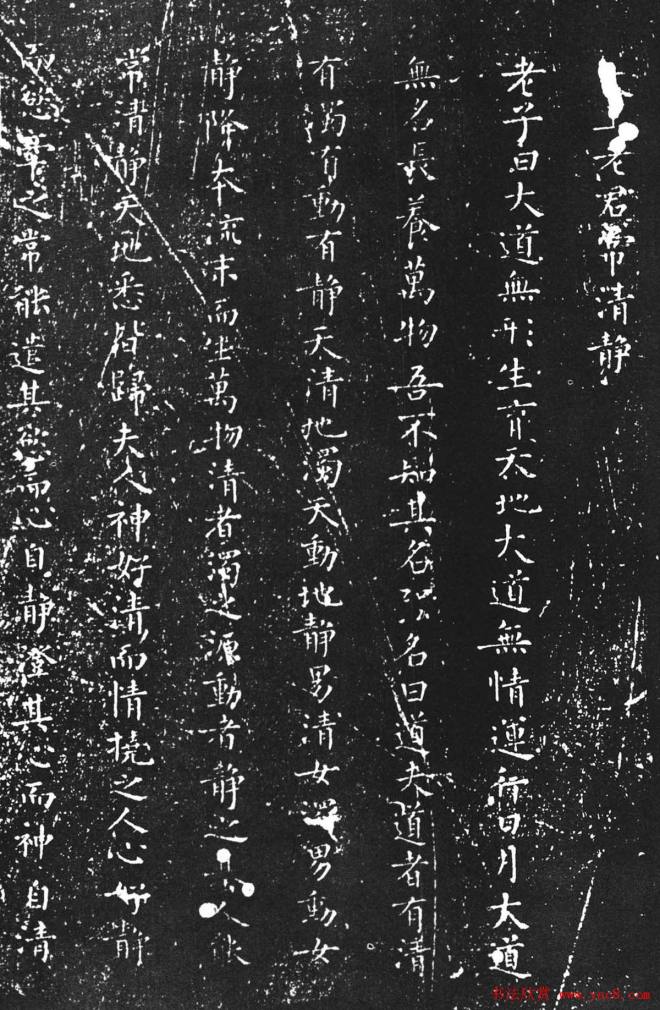 上老君常清静
老子曰大道無形生育天地大道無情運行日月大道
無名長養萬物吾不知其名强名曰道夫道者有清
有濁有動有静天清地濁天動地静男清女濁男動女
静降本流末而生萬物清者濁之源動者静之基人能
常清静天地悉皆歸夫人神好清而情撓之人心好静
而慾牽之常能遣其欲而心自静澄其心而神自清
书法欣赏 www.yac8.com